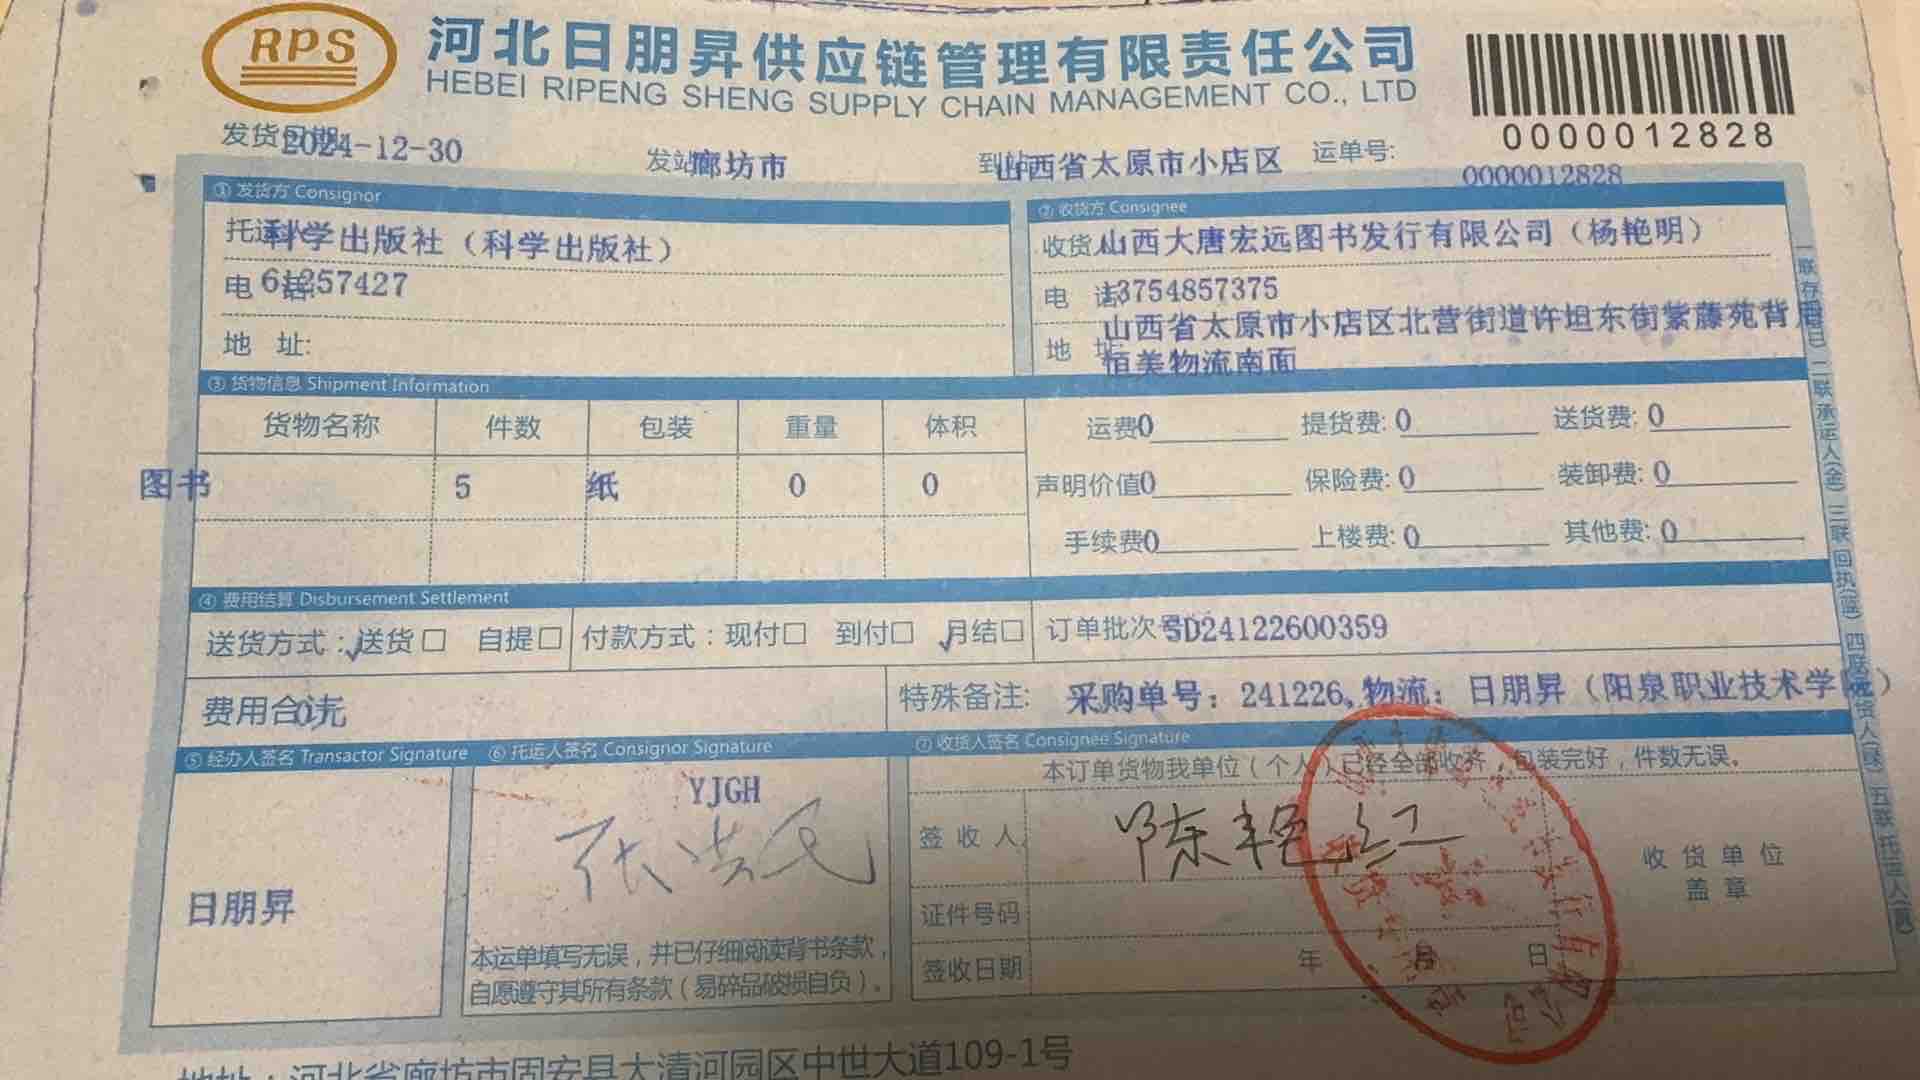 RPS
河北日朋昇供应链管理有限责任公司
HEBEI RIPENG SHENG SUPPLY CHAIN MANAGEMENT CO., LTD
0000012828
发货日期: 2024-12-30 发站 廊坊市 到站 山西省太原市小店区 运单号: 0000012828
① 发货方 Consignor
托运人 科学出版社（科学出版社）
电 话: 61257427
地 址:
② 收货方 Consignee
收货人 山西大唐宏远图书发行有限公司（杨艳明）
电 话 13754857375
地 址: 山西省太原市小店区北营街道许坦东街紫藤苑背后
恒美物流南面
③ 货物信息 Shipment Information
货物名称 件数 包装 重量 体积
图书 5 纸 0 0
运费0 提货费: 0 送货费: 0
声明价值0 保险费: 0 装卸费: 0
手续费0 上楼费: 0 其他费: 0
④ 费用结算 Disbursement Settlement
送货方式：✓送货□ 自提□ 付款方式：现付□ 到付□ ✓月结□ 订单批次号D24122600359
费用合计: 0元 特殊备注: 采购单号：241226,物流：日朋昇（阳泉职业技术学院）
⑤ 经办人签名 Transactor Signature
日朋昇
⑥ 托运人签名 Consignor Signature
YJGH
本运单填写无误，并已仔细阅读背书条款，
自愿遵守其所有条款（易碎品破损自负）。
⑦ 收货人签名 Consignee Signature
本订单货物我单位（个人）已经全部收齐，包装完好，件数无误。
签收人 陈艳红
证件号码
签收日期 年 月 日
收货单位
盖章
一联存根(白) 二联承运人(金) 三联回执(蓝) 四联收货人(绿) 五联托运人(黄)
地址：河北省廊坊市固安县大清河园区中世大道109-1号